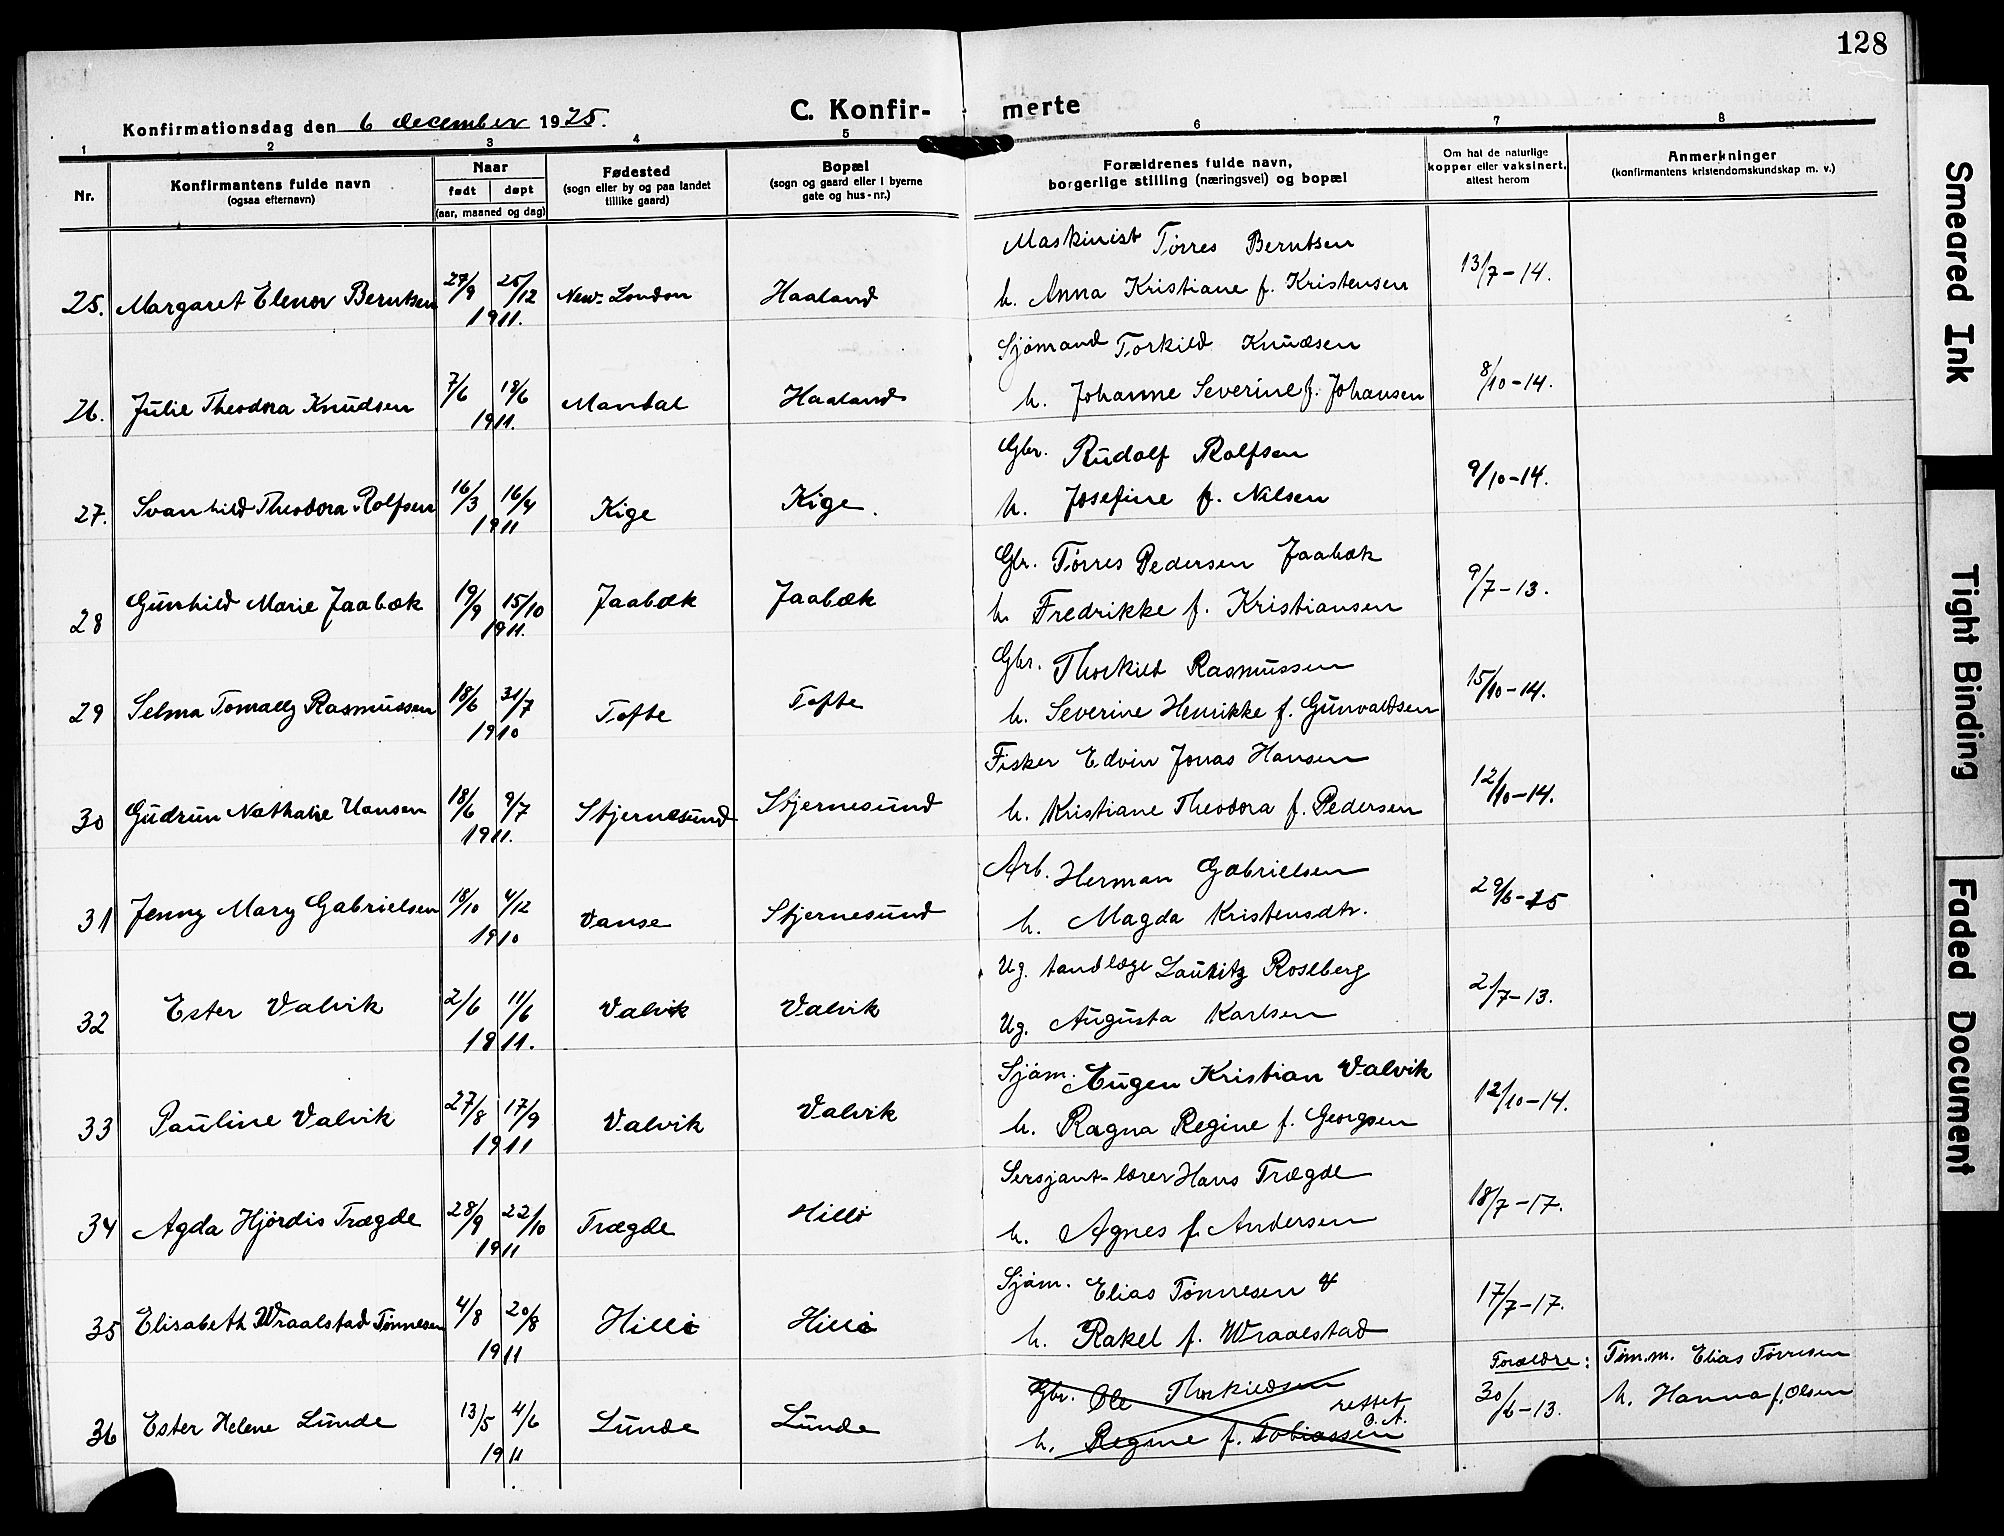 128
Konfirmationsdag den 6 december 1925.
C. Konfirmerte
1 2 3 4 5 6 7 8
Nr.
Konfirmantens fulde navn
(ogsaa efternavn)
Naar
født døpt
(aar, maaned og dag)
Fødested
(sogn eller by og paa landet
tillike gaard)
Bopæl
(sogn og gaard eller i byerne
gate og hus-nr.)
Forældrenes fulde navn,
borgerlige stilling (næringsvei) og bopæl
Om hat de naturlige
kopper eller vaksinert,
attest herom
Anmerkninger
(konfirmantens kristendomskundskap m. v.)
25. Margaret Elenor Berntsen 27/9 25/12 1911. New-London Haaland
Maskinist Tørres Berntsen
h. Anna Kristiane f. Kristensen
13/7-14.
26. Julie Theodora Knudsen 7/6 18/6 1911. Mandal Haaland
Sjømand Torkild Knudsen
h. Johanne Severine f. Johansen
8/10-14.
27. Svanhild Theodora Rolfsen 16/3 16/4 1911 Kige Kige.
Gbr. Rudolf Rolfsen
h. Josefine f. Nilsen
9/10-14.
28 Gunhild Marie Jaabæk 19/9 15/10 1911. Jaabæk Jaabæk
Gbr. Tørres Pedersen Jaabæk
h. Fredrikke f. Kristiansen
9/7-13.
29 Selma Tomally Rasmussen 18/6 31/7 1910 Tofte Tofte
Gbr. Thorkild Rasmussen
h. Severine Henrikke f. Gunvaldsen
15/10-14.
30 Gudrun Nathalie Hansen 18/6 9/7 1911. Stjernesund Stjernesund
Fisker Edvin Jonas Hansen
h. Kristiane Theodora f. Pedersen
12/10-14.
31 Jenny Mary Gabrielsen 18/10 4/12 1910 Vanse Stjernesund
Arb. Herman Gabrielsen
h. Magda Kristensdtr.
29/6-25
32 Ester Valvik 2/6 11/6 1911. Valvik Valvik
Ug. tandlæge Lauritz Roseberg
Ug. Augusta Karlsen
2/7-13.
33 Pauline Valvik 27/8 17/9 1911 Valvik Valvik
Sjøm. Eugen Kristian Valvik
h. Ragna Regine f. Georgsen
12/10-14.
34 Agda Hjørdis Trægde 28/9 22/10 1911 Trægde Hillø
Sersjant-lærer Hans Trægde
h. Agnes f. Andersen
18/7-17.
35 Elisabeth Wraalstad Tønnesen 4/8 20/8 1911 Hillø Hillø
Sjøm. Elias Tønnesen &
h. Rakel f. Wraalstad
17/7-17.
36 Ester Helene Lunde 13/5 4/6 1911. Lunde Lunde
Gbr. Ole Thorkildsen
h. Regine f. Tobiassen
rettet
O.A.
Forældre: Tøm.m. Elias Tørresen
30/6-13. h. Hanna f. Olsen
Smeared Ink
Tight Binding
Faded Document